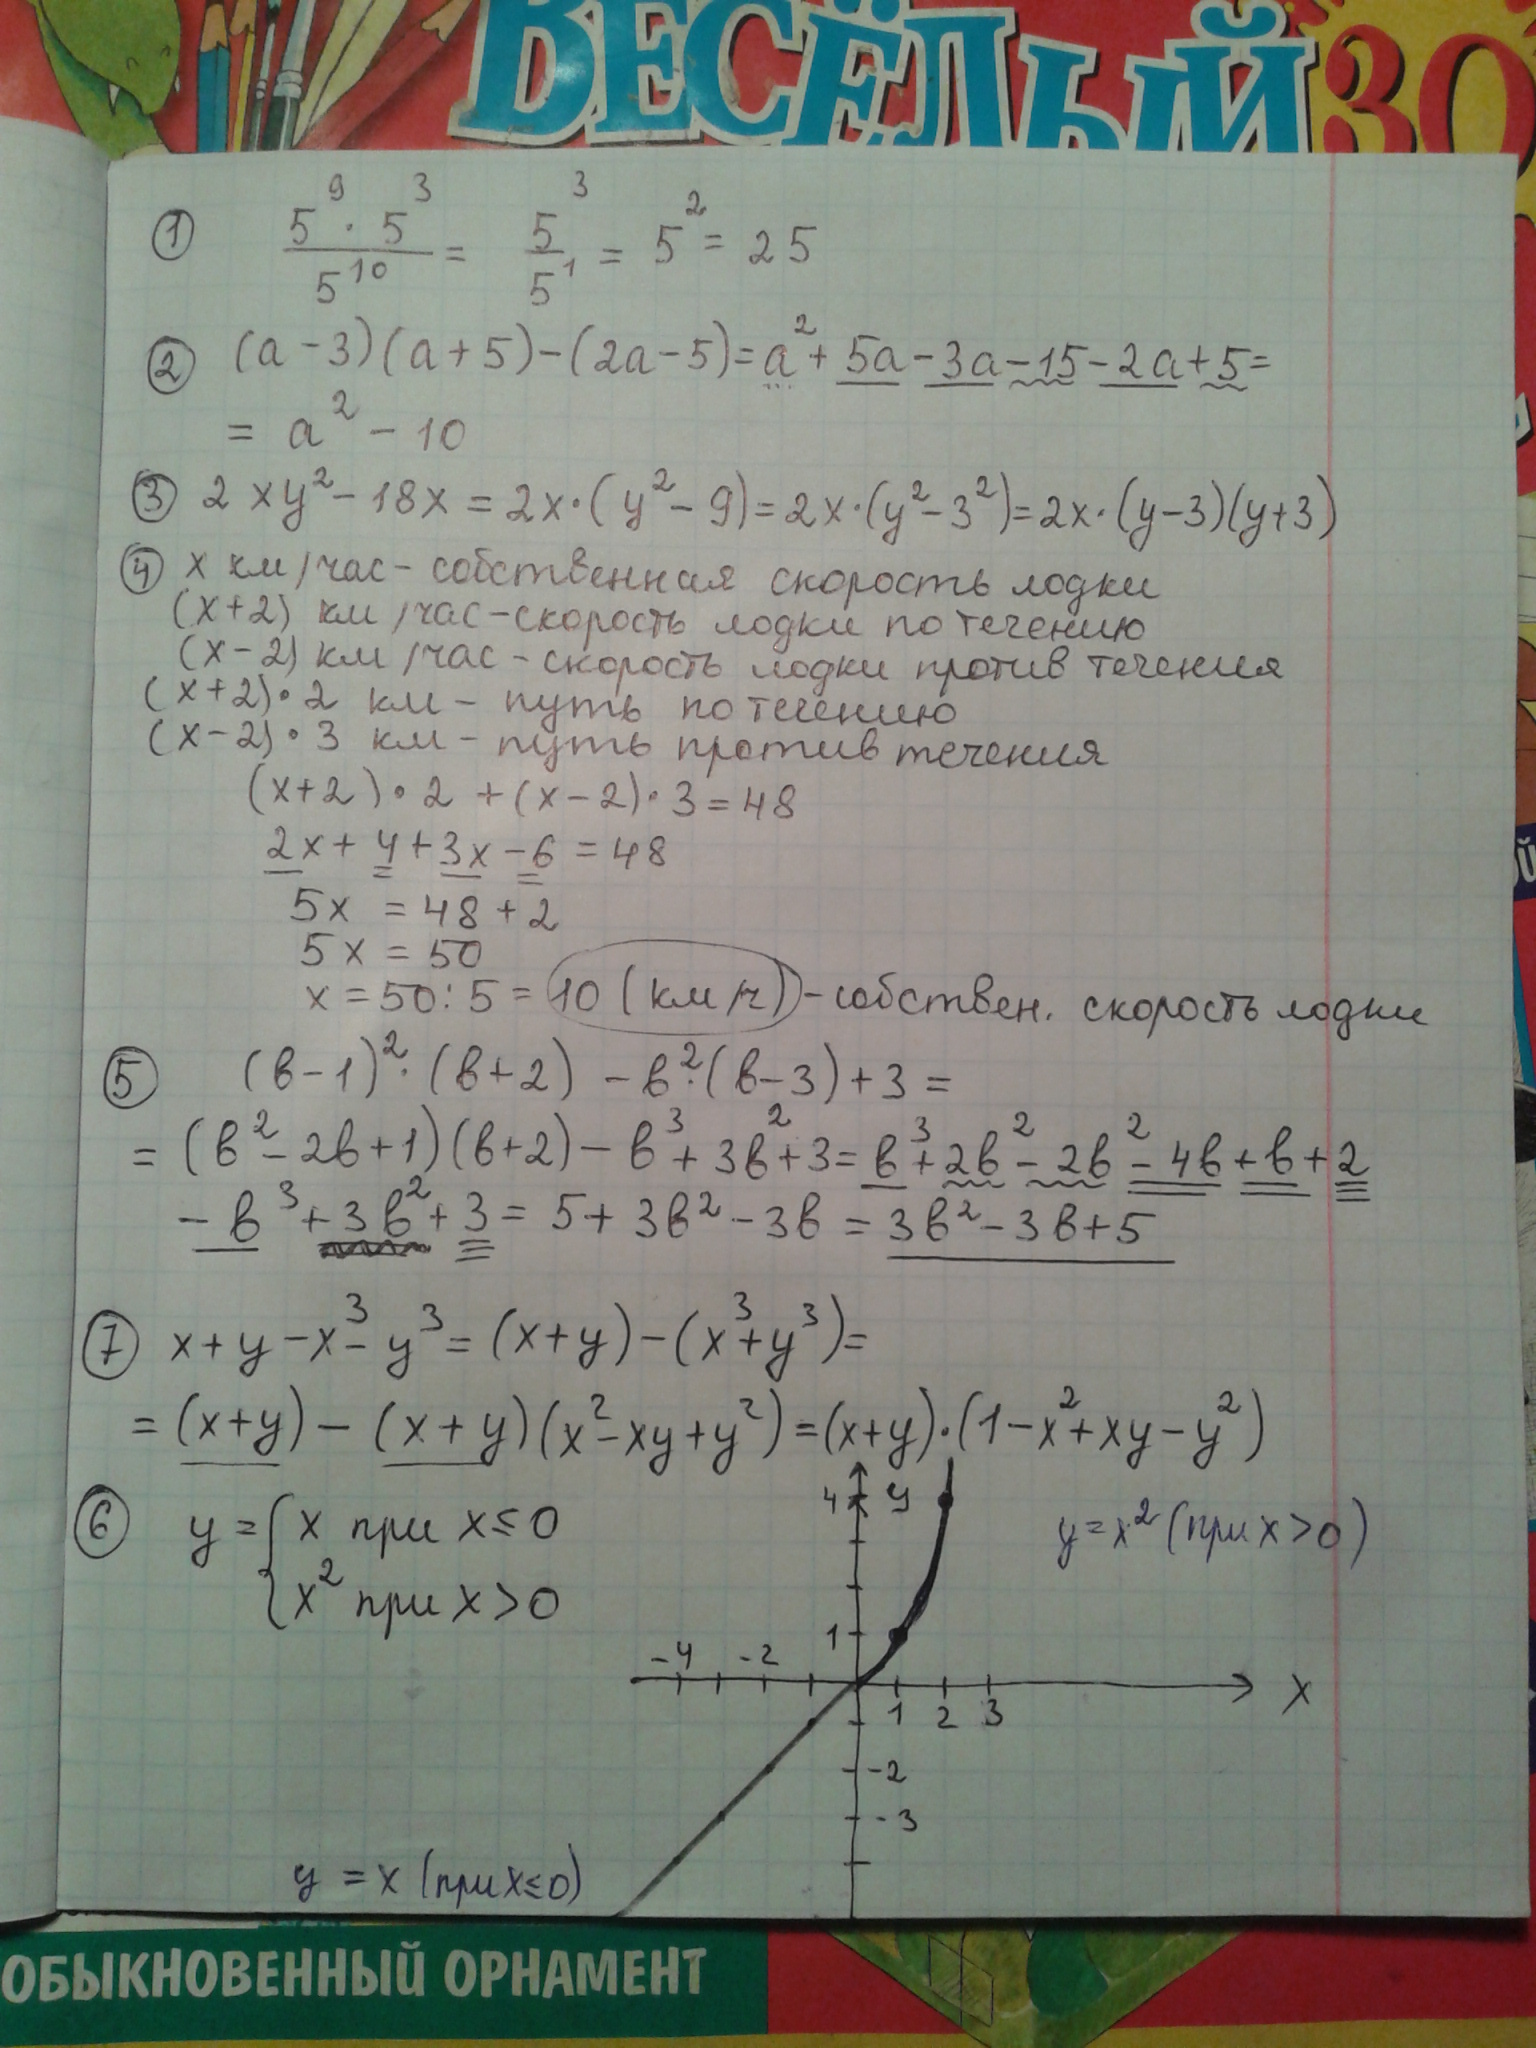 ВЕСЁЛЫЙ ЗО
① (5⁹ · 5³)/5¹⁰ = 5³/5¹ = 5² = 25
② (a - 3)(a + 5) - (2a - 5) = a² + 5a - 3a - 15 - 2a + 5 =
= a² - 10
③ 2xy² - 18x = 2x·(y² - 9) = 2x·(y² - 3²) = 2x·(y - 3)(y + 3)
④ x км/час - собственная скорость лодки
(x + 2) км/час - скорость лодки по течению
(x - 2) км/час - скорость лодки против течения
(x + 2)·2 км - путь по течению
(x - 2)·3 км - путь против течения
(x + 2)·2 + (x - 2)·3 = 48
2x + 4 + 3x - 6 = 48
5x = 48 + 2
5x = 50
x = 50 : 5 = 10 (км/ч) - собствен. скорость лодки
⑤ (в - 1)²·(в + 2) - в²·(в - 3) + 3 =
= (в² - 2в + 1)(в + 2) - в³ + 3в² + 3 = в³ + 2в² - 2в² - 4в + в + 2
- в³ + 3в² + 3 = 5 + 3в² - 3в = 3в² - 3в + 5
⑦ x + y - x³ - y³ = (x + y) - (x³ + y³) =
= (x + y) - (x + y)(x² - xy + y²) = (x + y)·(1 - x² + xy - y²)
⑥ y = { x при x ≤ 0
x² при x > 0
4 y
y = x² (при x > 0)
1
-4 -2
1 2 3 x
-2
-3
y = x (при x ≤ 0)
ОБЫКНОВЕННЫЙ ОРНАМЕНТ